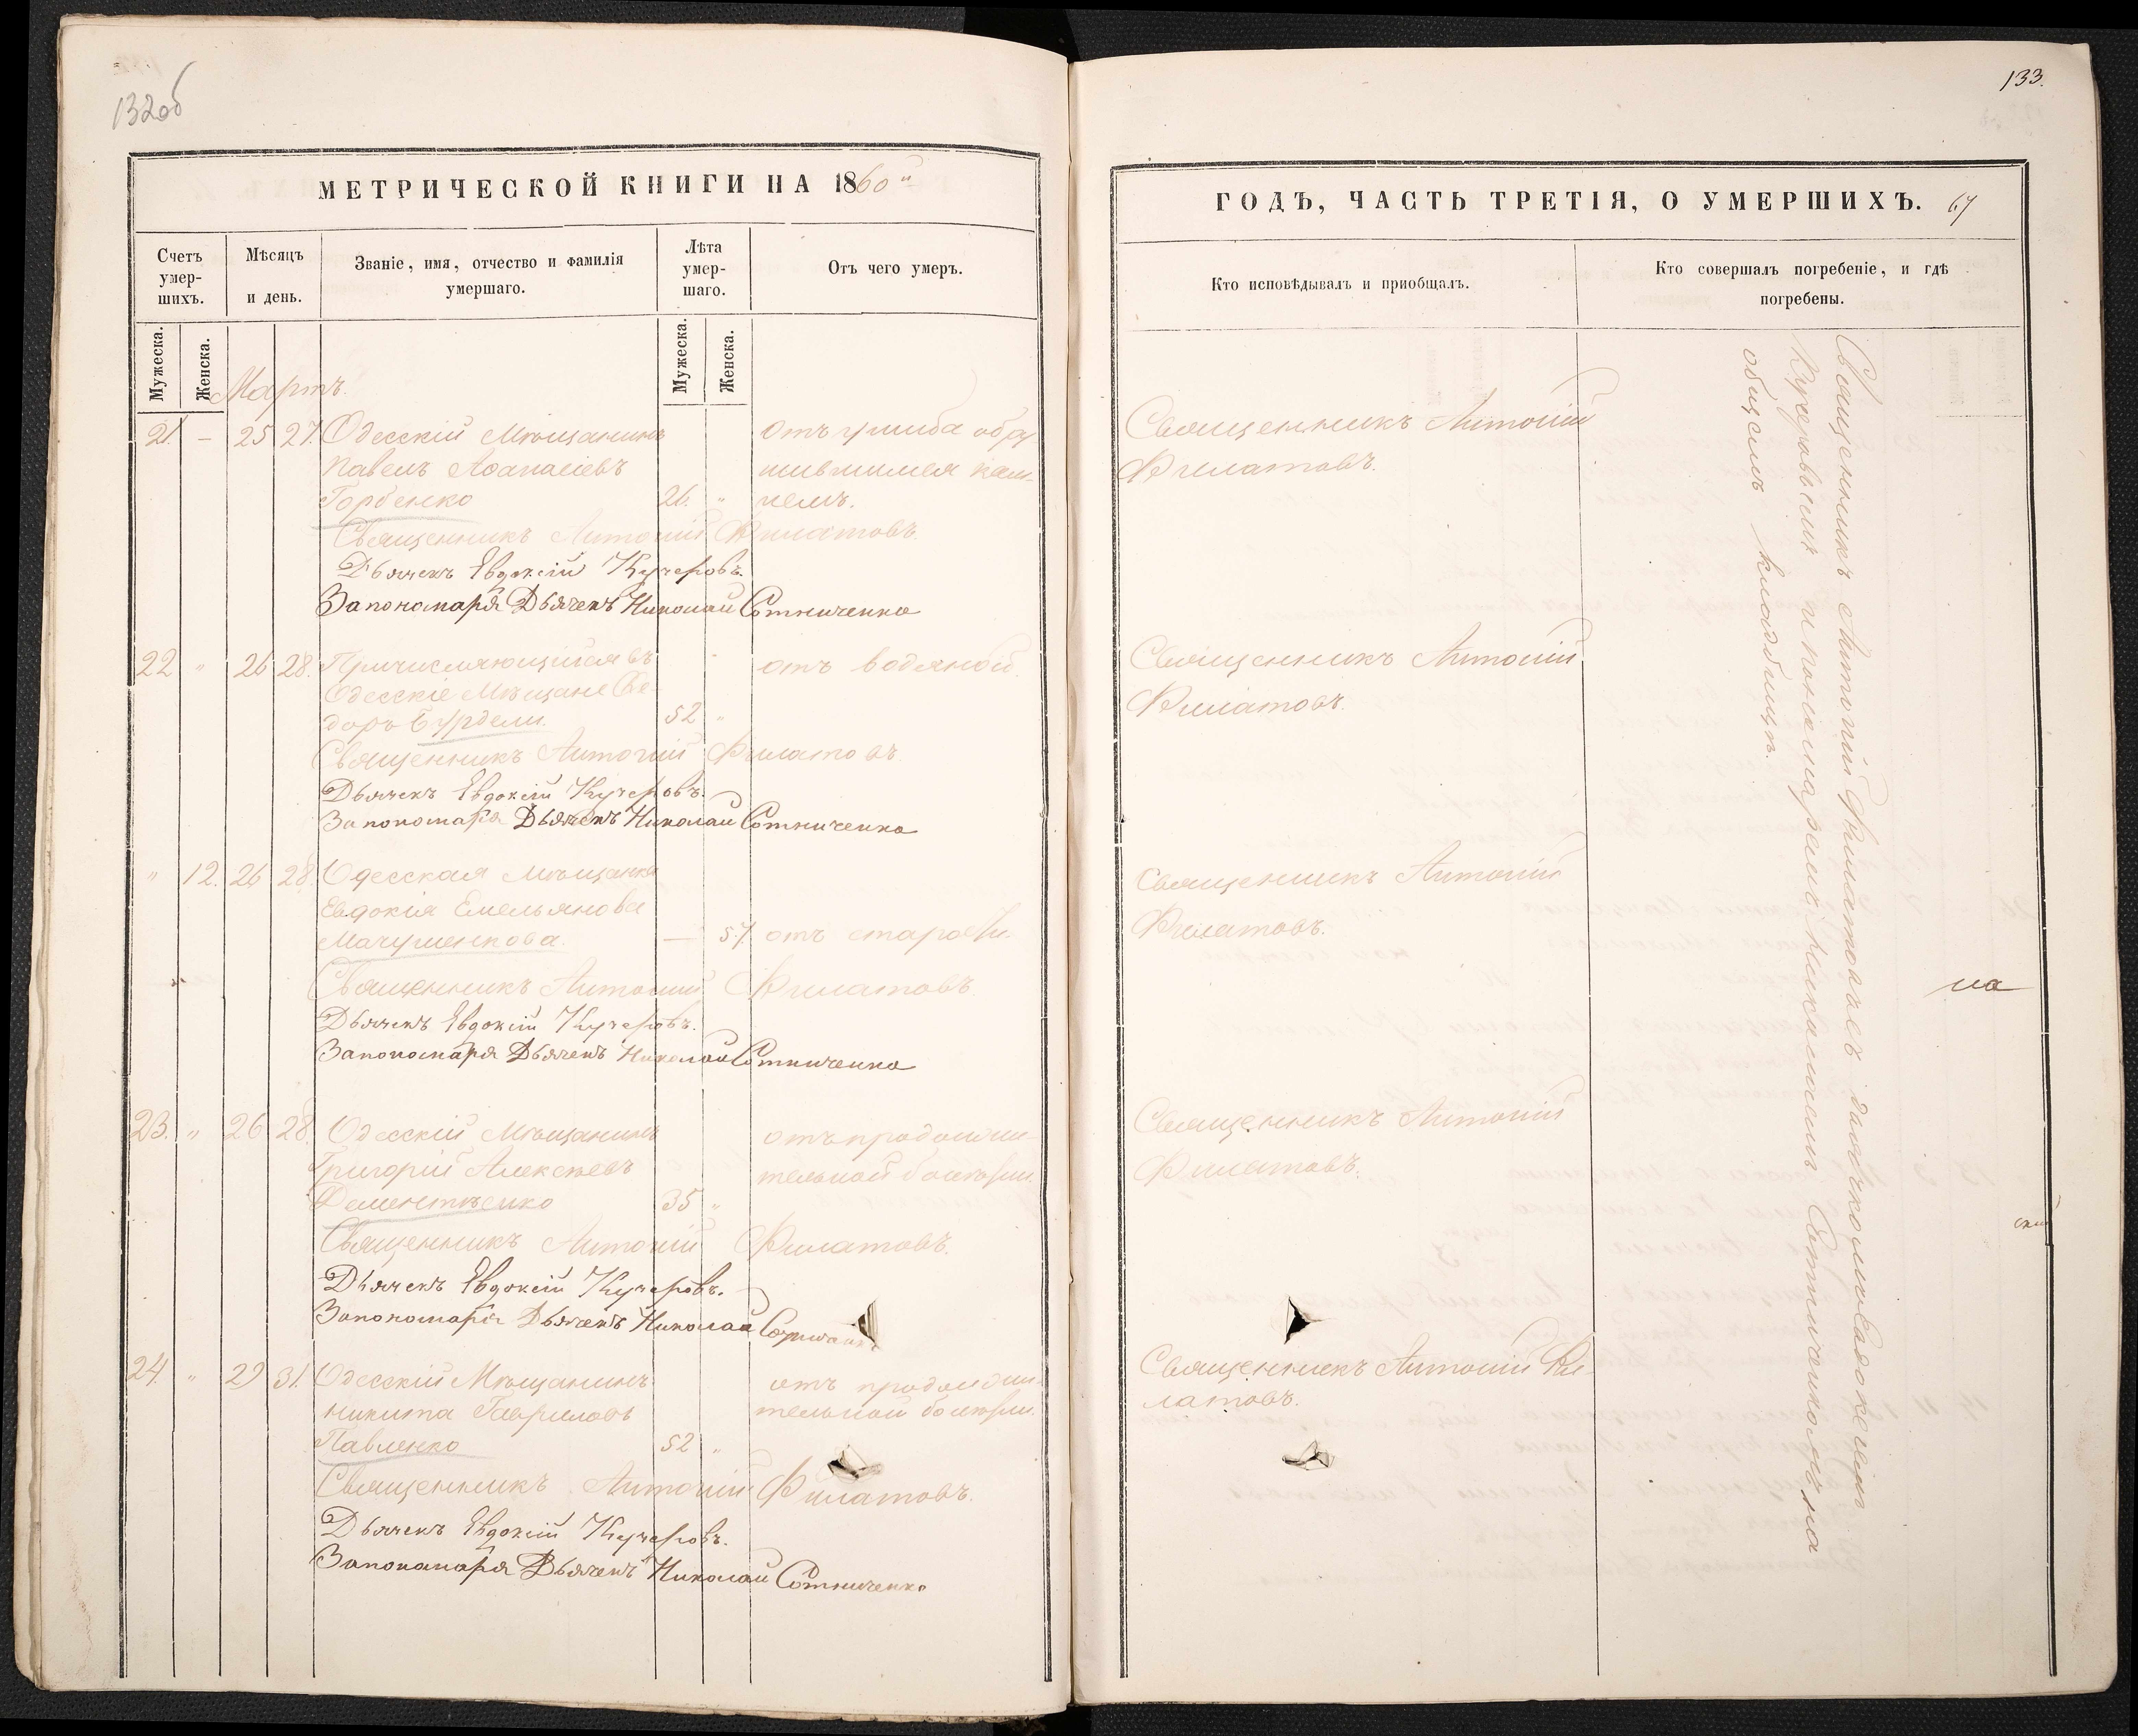 132об
МЕТРИЧЕСКОЙ КНИГИ НА 1860й
Счетъ умер-шихъ.
Мѣсяцъ и день.
Званіе, имя, отчество и фамилія умершаго.
Лѣта умер-шаго.
Отъ чего умеръ.
Мужеска.
Женска.
Мужеска.
Женска.
Мартъ.
21. — 25 27. Одесскій Мѣщанинъ отъ ушиба обру
Павелъ Аѳанасіевъ шившимся кам-
Горбенко 26. " немъ.
Священникъ Антоній Филатовъ.
Дьячекъ Евдокій Кучеровъ.
За пономаря Дьячекъ Николай Сотниченко
22 " 26 28. Причисляющійся въ отъ водяной.
Одесскіе Мѣщане Ѳе-
доръ Бурдели. 52 "
Священникъ Антоній Филатовъ
Дьячекъ Евдокій Кучеровъ.
За пономаря Дьячекъ Николай Сотниченко
" 12. 26 28. Одесская Мѣщанка
Евдокія Емельянова
Мачушенкова. — 57. отъ старости.
Священникъ Антоній Филатовъ
Дьячекъ Евдокій Кучеровъ.
За пономаря Дьячекъ Николай Сотниченко
23. " 26 28. Одесскій Мѣщанинъ отъ продолжи-
Григорій Алексѣевъ тельной болѣзни.
Дементѣенко 35 "
Священникъ Антоній Филатовъ.
Дьячекъ Евдокій Кучеровъ.
За пономаря Дьячекъ Николай
24. " 29 31. Одесскій Мѣщанинъ отъ продолжи-
Никита Гавриловъ тельной болѣзни.
Павленко 52 "
Священникъ Антоній Филатовъ.
Дьячекъ Евдокій Кучеровъ.
За пономаря Дьячекъ Николай Сотниченко
133.
ГОДЪ, ЧАСТЬ ТРЕТІЯ, О УМЕРШИХЪ. 67
Кто исповѣдывалъ и приобщалъ.
Кто совершалъ погребеніе, и гдѣ
погребены.
Священникъ Антоній
Филатовъ.
Священникъ Антоній
Филатовъ.
Священникъ Антоній
Филатовъ.
Священникъ Антоній
Филатовъ.
Священникъ Антоній Фи-
латовъ.
Священникъ Антоній Филатовъ съ дьячкомъ Евдокеимъ
Кучеровымъ и пономаремъ Николаемъ Сотниченковъ на
общемъ кладбищѣ.
на